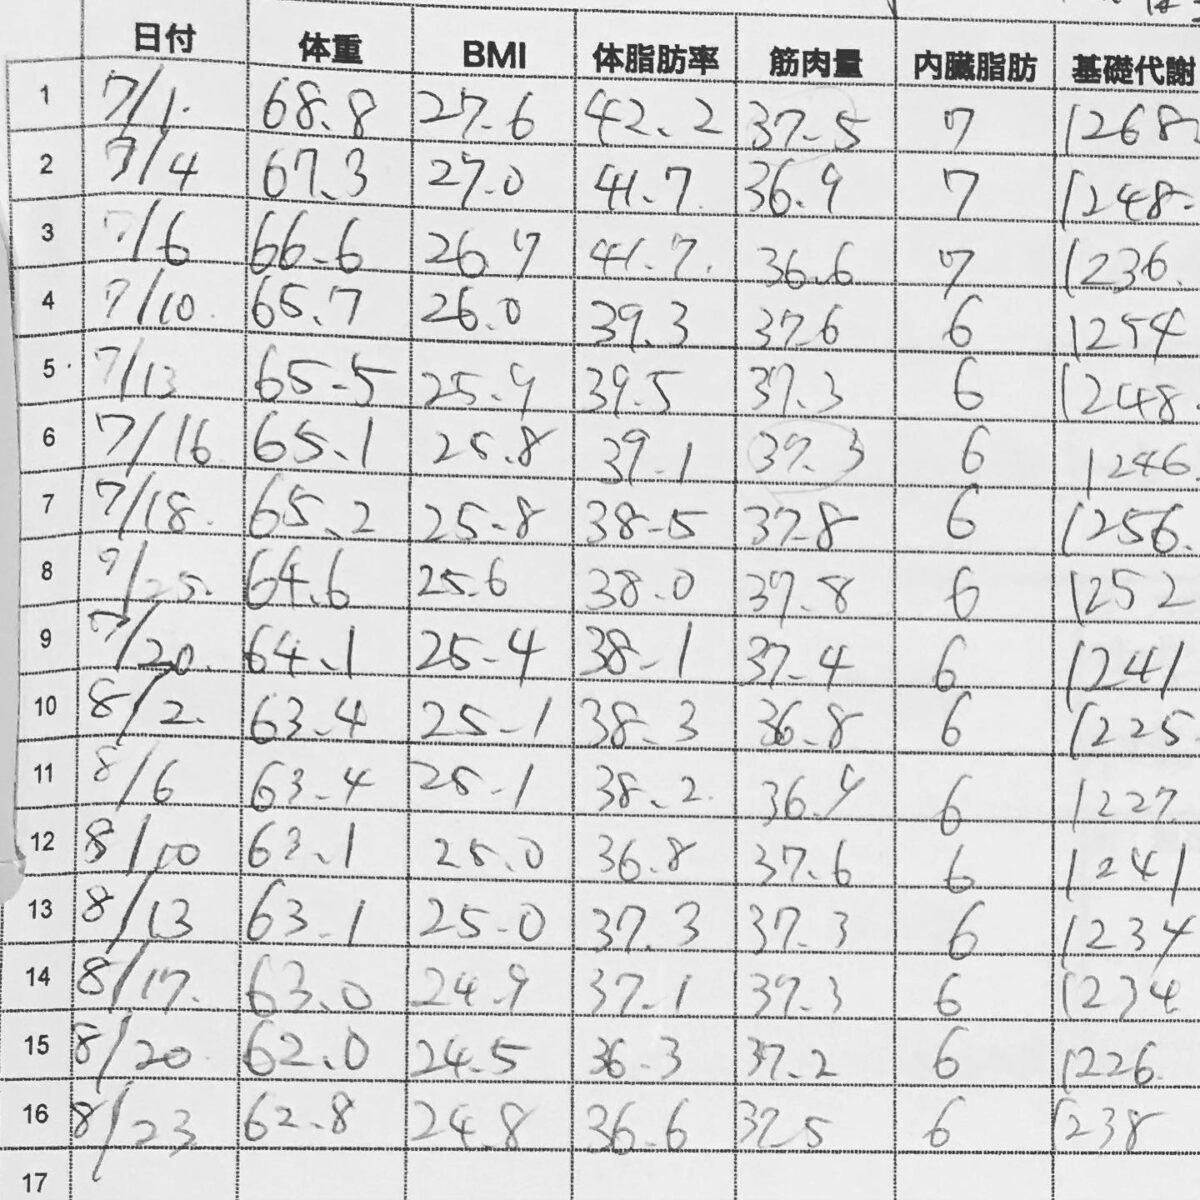 日付 体重 BMI 体脂肪率 筋肉量 内臓脂肪 基礎代謝
1 7/1. 68.8 27.6 42.2 37.5 7 1268.
2 7/4 67.3 27.0 41.7 36.9 7 1248.
3 7/6 66.6 26.7 41.7. 36.6 7 1236.
4 7/10. 65.7 26.0 39.3 37.6 6 1254
5 7/13 65.5 25.9 39.5 37.3 6 1248.
6 7/16 65.1 25.8 39.1 37.3 6 1246.
7 7/18. 65.2 25.8 38.5 37.8 6 1256.
8 7/25. 64.6 25.6 38.0 37.8 6 1252
9 7/20. 64.1 25.4 38.1 37.4 6 1241
10 8/2. 63.4 25.1 38.3 36.8 6 1225.
11 8/6 63.4 25.1 38.2. 36.9 6 1227.
12 8/10 63.1 25.0 36.8 37.6 6 1241
13 8/13 63.1 25.0 37.3 37.3 6 1234
14 8/17. 63.0 24.9 37.1 37.3 6 1234
15 8/20. 62.0 24.5 36.3 37.2 6 1226.
16 8/23 62.8 24.8 36.6 37.5 6 1238
17